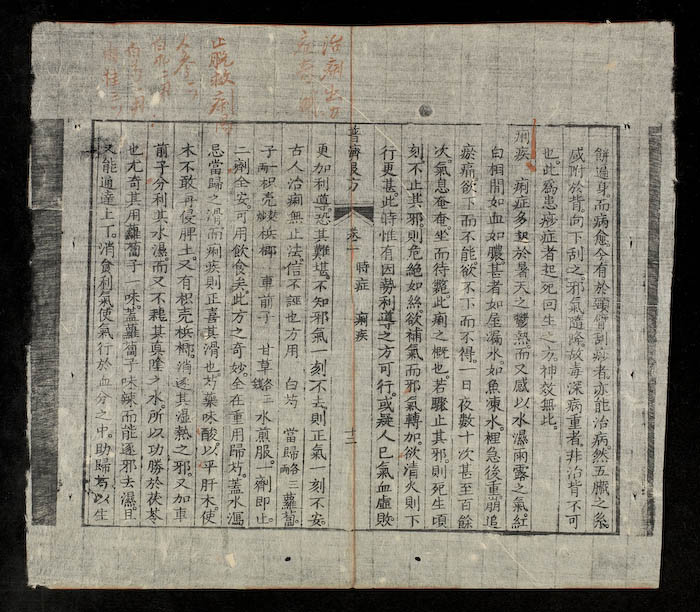 餅過身而病愈今有於頸曾刮痧者亦能治病然五臟之系
咸附於背向下刮之邪氣隨降故毒深病重者非治背不可
也此爲患痧症者起死回生之方神效無比
痢疾 痢症多起於暑天之鬱熱而又感以水濕雨露之氣紅
白相間如血如膿甚者如屋漏水如魚凍水裡急後重崩追
瘀痛欲下而不能欲不下而不得一日夜數十次甚至百餘
次氣息奄奄坐而待斃此痢之概也若驟止其邪則死生頃
刻不止其邪則危絕如絲欲補氣而邪氣轉加欲清火則下
行更甚此時惟有因勢利導之方可行或疑人已氣血虛敗
普濟良方 卷一 時症 痢疾 十二
更加利導恐其難堪不知邪氣一刻不去則正氣一刻不安
古人治痢無止法信不誣也方用 白芍 當歸各三兩 蘿蔔
子一兩 枳壳 檳榔 車前子 甘草各三錢 水煎服一劑即止
二劑全安可用飲食矣此方之奇妙全在重用歸芍蓋水瀉
忌當歸之滑而痢疾則正喜其滑也芍藥味酸以平肝木使
木不敢再侵脾土又有枳壳檳榔消逐其濕熱之邪又加車
前子分利其水濕而又不耗其真陰之水所以功勝於茯苓
也尤奇其用蘿蔔子一味蓋蘿蔔子味辣而能逐邪去濕且
又能通達上下消食利氣使氣行於血分之中助歸芍以生
治痢出方
止脫救痢湯
人參二
白朮二兩
白芍二兩
肉桂三